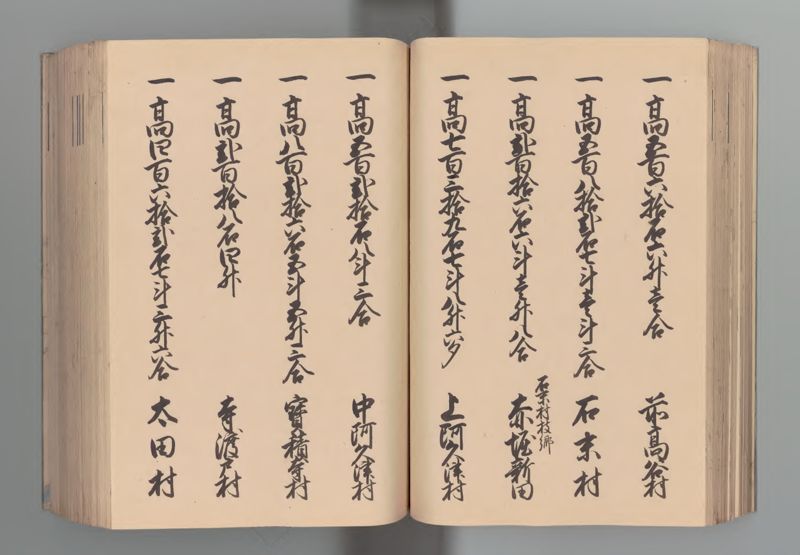 一 高五百六拾石六升壱合 前高谷村
一 高五百八拾弐石七斗壱斗三合 石末村
一 高弐百拾六石六斗壱升八合 石末村枝郷 赤堀新田
一 高七百三拾九石七斗八升六夕 上阿久津村
一 高五百弐拾石八斗三合 中阿久津村
一 高八百弐拾六石五斗五升三合 寳積寺村
一 高弐百拾八石四升 寺渡戸村
一 高四百六拾弐石七斗三升六合 太田村